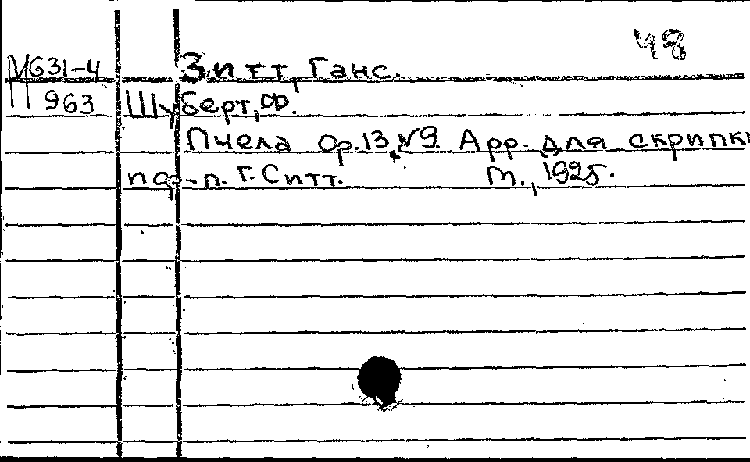 48
М631-4 Зитт, Ганс.
П963 Шуберт, Ф.
Пчела Op.13, №9. Арр. для скрипки
пар-п. Г. Ситт. М., 1925.